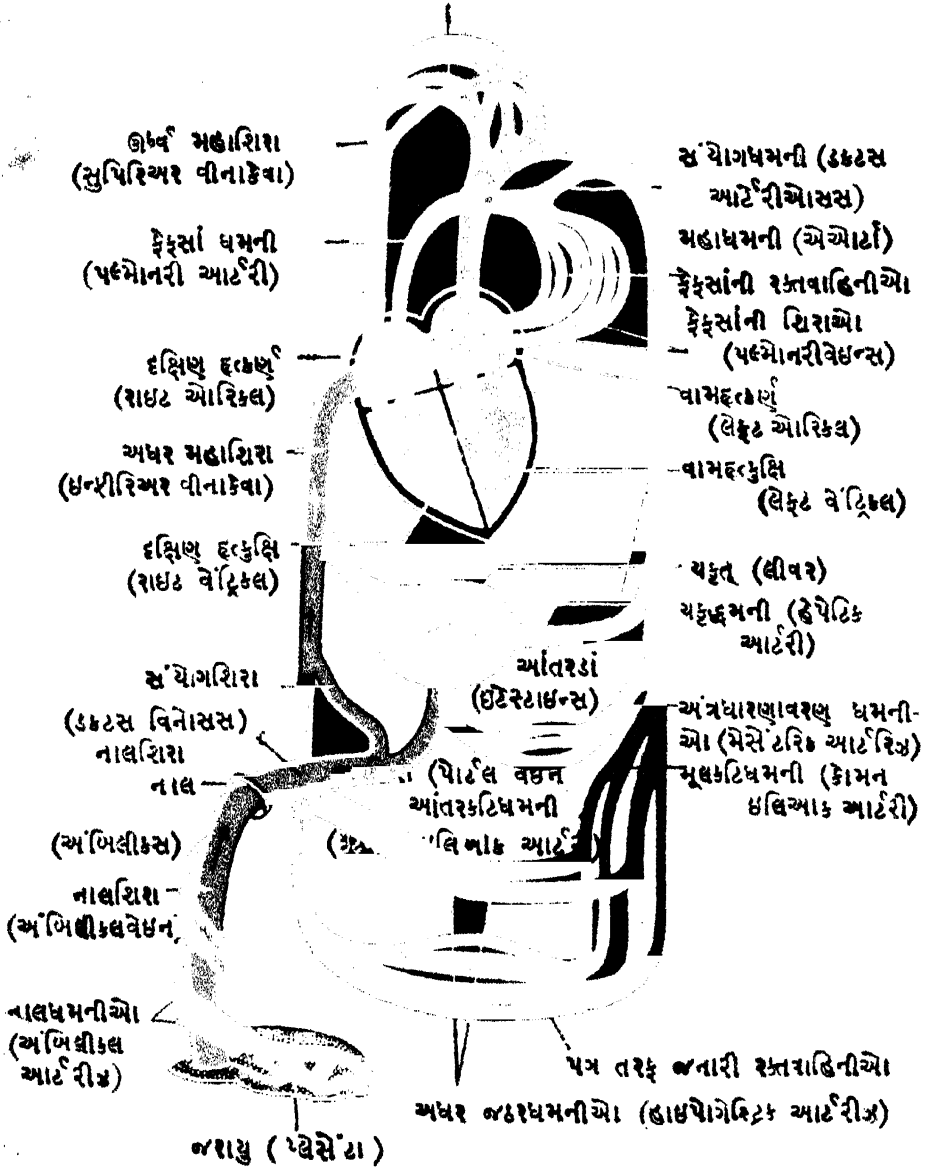 ઊર્ધ્વ મહાશિરા
(સુપિરિઅર વીનાકેવા)
ફેફસાં ધમની
(પલ્મોનરી આર્ટરી)
દક્ષિણ હૃત્કર્ણ
(રાઇટ ઓરિકલ)
અધર મહાશિરા
(ઇન્ફીરિઅર વીનાકેવા)
દક્ષિણ હૃત્કુક્ષિ
(રાઇટ વેંટ્રિકલ)
સંયોગશિરા
(ડક્ટસ વિનોસસ)
નાલશિરા
નાલ
(અંબિલીકસ)
નાલશિરા
(અંબિલીકલવેઇન)
નાલધમનીઓ
(અંબિલીકલ
આર્ટરીઝ)
જરાયુ (પ્લેસેંટા)
સંયોગધમની (ડક્ટસ
આર્ટેરીઓસસ)
મહાધમની (એઓર્ટા)
ફેફસાંની રક્તવાહિનીઓ
ફેફસાંની શિરાઓ
(પલ્મોનરીવેઇન્સ)
વામહૃત્કર્ણ
(લેફ્ટ ઓરિકલ)
વામહૃત્કુક્ષિ
(લેફ્ટ વેંટ્રિકલ)
યકૃત્ (લીવર)
યકૃદ્ધમની (હેપેટિક
આર્ટરી)
આંતરડાં
(ઇંટેસ્ટાઇન્સ)
અંત્રધારણાવરણ ધમની-
ઓ (મેસેંટરિક આર્ટરિઝ)
મૂલકટિધમની (કોમન
ઇલિઆક આર્ટરી)
(પોર્ટલ વેઇન
આંતરકટિધમની
આર્ટરી)
પગ તરફ જનારી રક્તવાહિનીઓ
અધર જઠરધમનીઓ (હાઇપોગેસ્ટ્રિક આર્ટરીઝ)